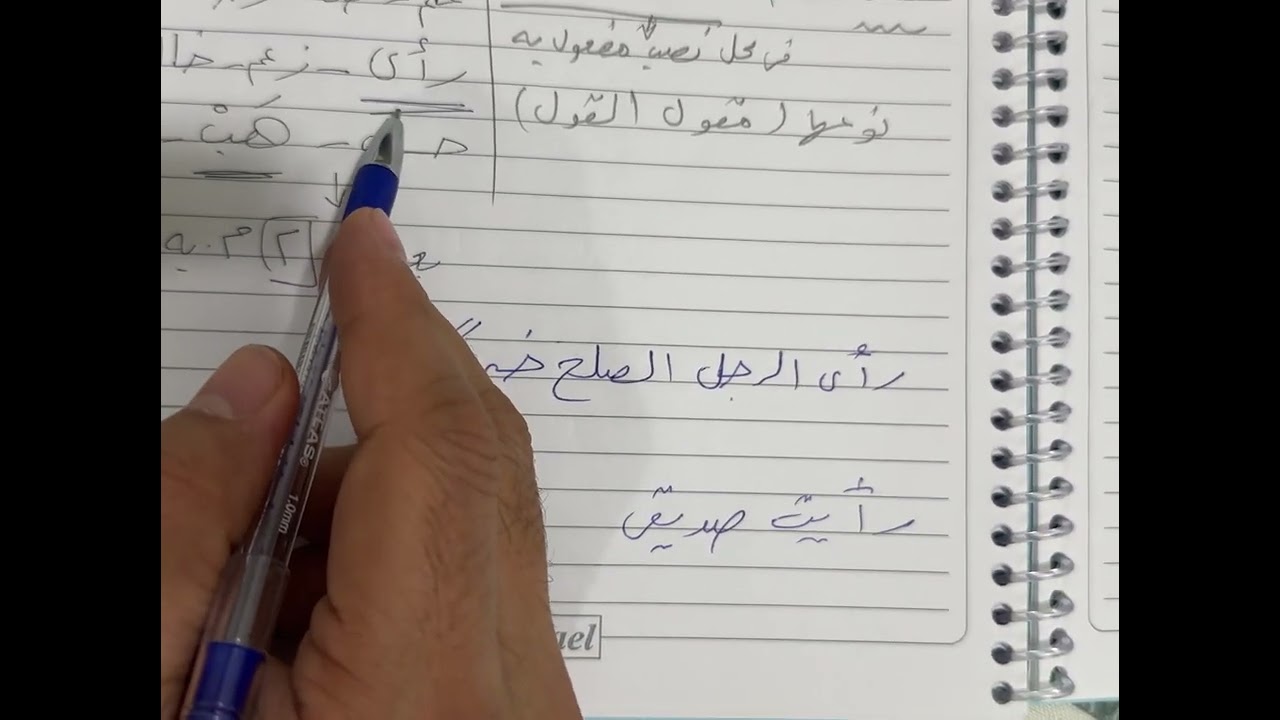 في محل نصب مفعول به
نوعها (مقول القول)
رأى - زعم - خا
هَبْ -
[٢] م. به
رأى الرجل الصلح
رأيت صديق
ATLAS® 1.0mm
ael